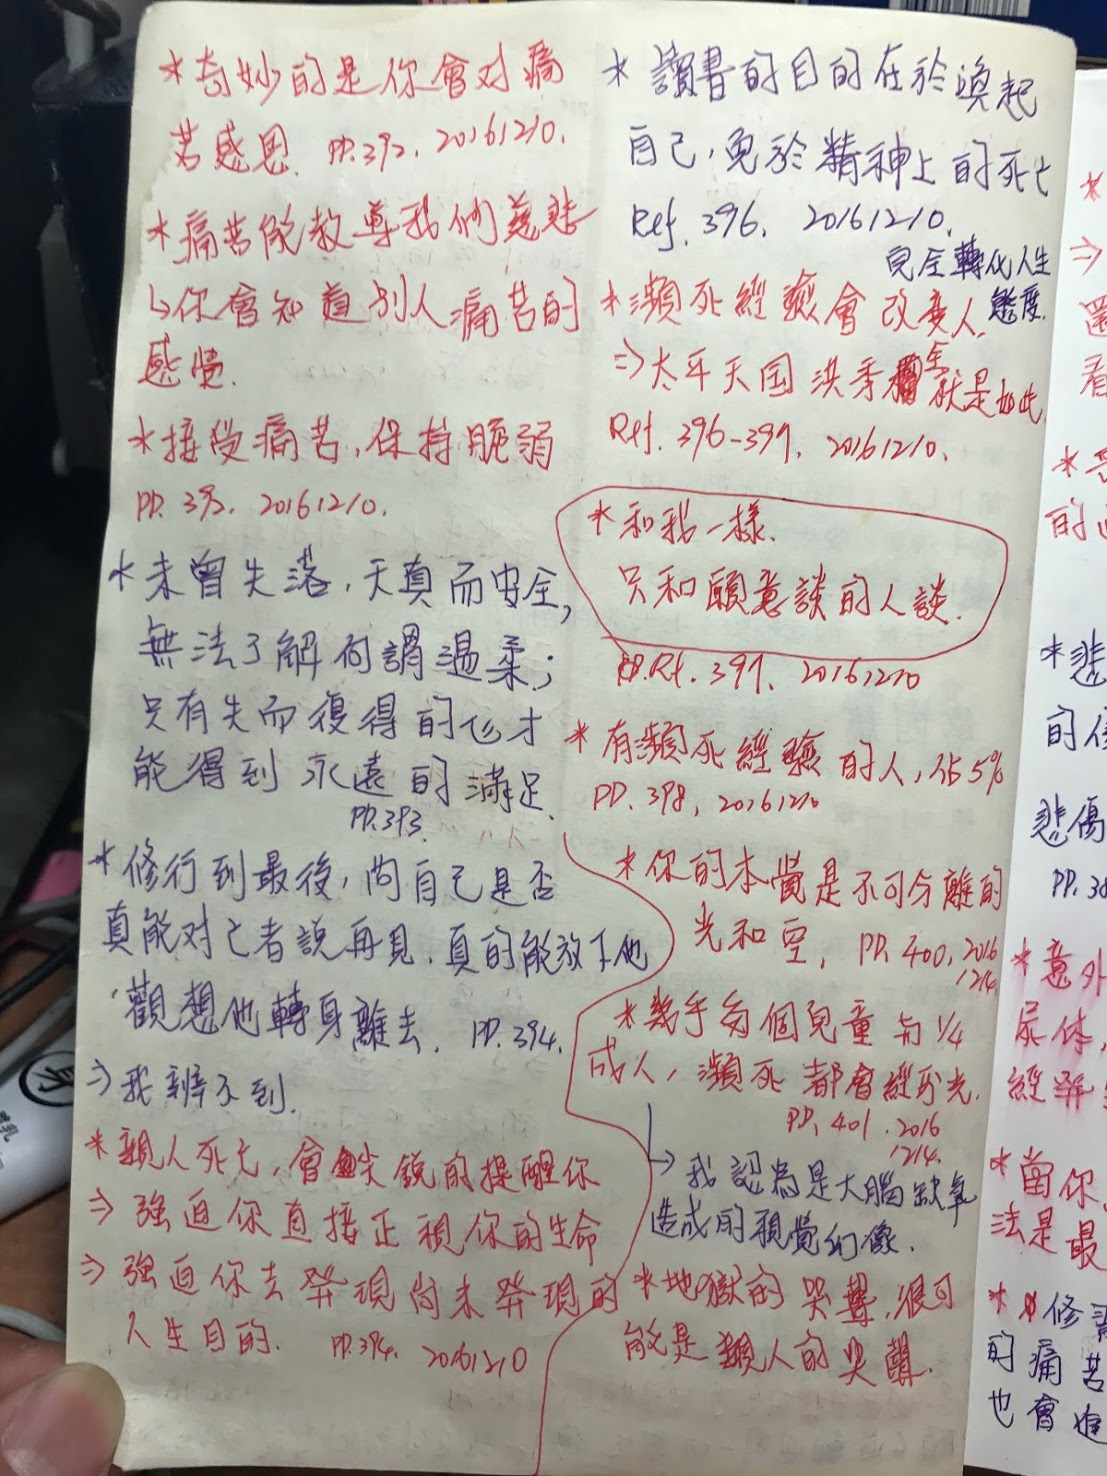 *奇妙的是你會对痛
苦感恩. PP.392. 20161210.
*痛苦能教導我們慈悲
↳你會知道別人痛苦的
感覺.
*接受痛苦,保持脆弱
PP. 392. 20161210.
*未曾失落,天真而安全,
無法了解何謂溫柔;
只有失而復得的心才
能得到永遠的滿足.
PP.393.
*修行到最後,問自己是否
真能对亡者說再見.真的能放下他
觀想他轉身離去. PP.394.
⇒我辨不到.
*親人死亡,會尖銳的提醒你
⇒強迫你直接正視你的生命
⇒強迫你去發現尚未發現的
人生目的. PP.394. 20161210
*讀書的目的在於喚起
自己,免於精神上的死亡
Ref. 396. 20161210.
完全轉化人生
態度.
*瀕死經驗會改变人.
⇒太平天国洪秀全就是如此.
Ref. 396-397. 20161210.
*和我一樣.
只和願意談的人談.
Ref. 397. 20161210
*有瀕死經驗的人,佔5%
PP. 398, 20161210
*你的本覺是不可分離的
光和空. PP. 400. 2016
1214.
*幾乎每個兒童与1/4
成人,瀕死都會經歷光.
PP. 401. 2016
1214.
→我認為是大腦缺氧
造成的視覺幻像.
*地獄的哭聲,很可
能是親人的哭聲.
*
⇒
還
看
*
的
*悲
的
悲傷
PP.
*意外
尿体,
經
*當你
法是最
*修
的痛苦
也會進